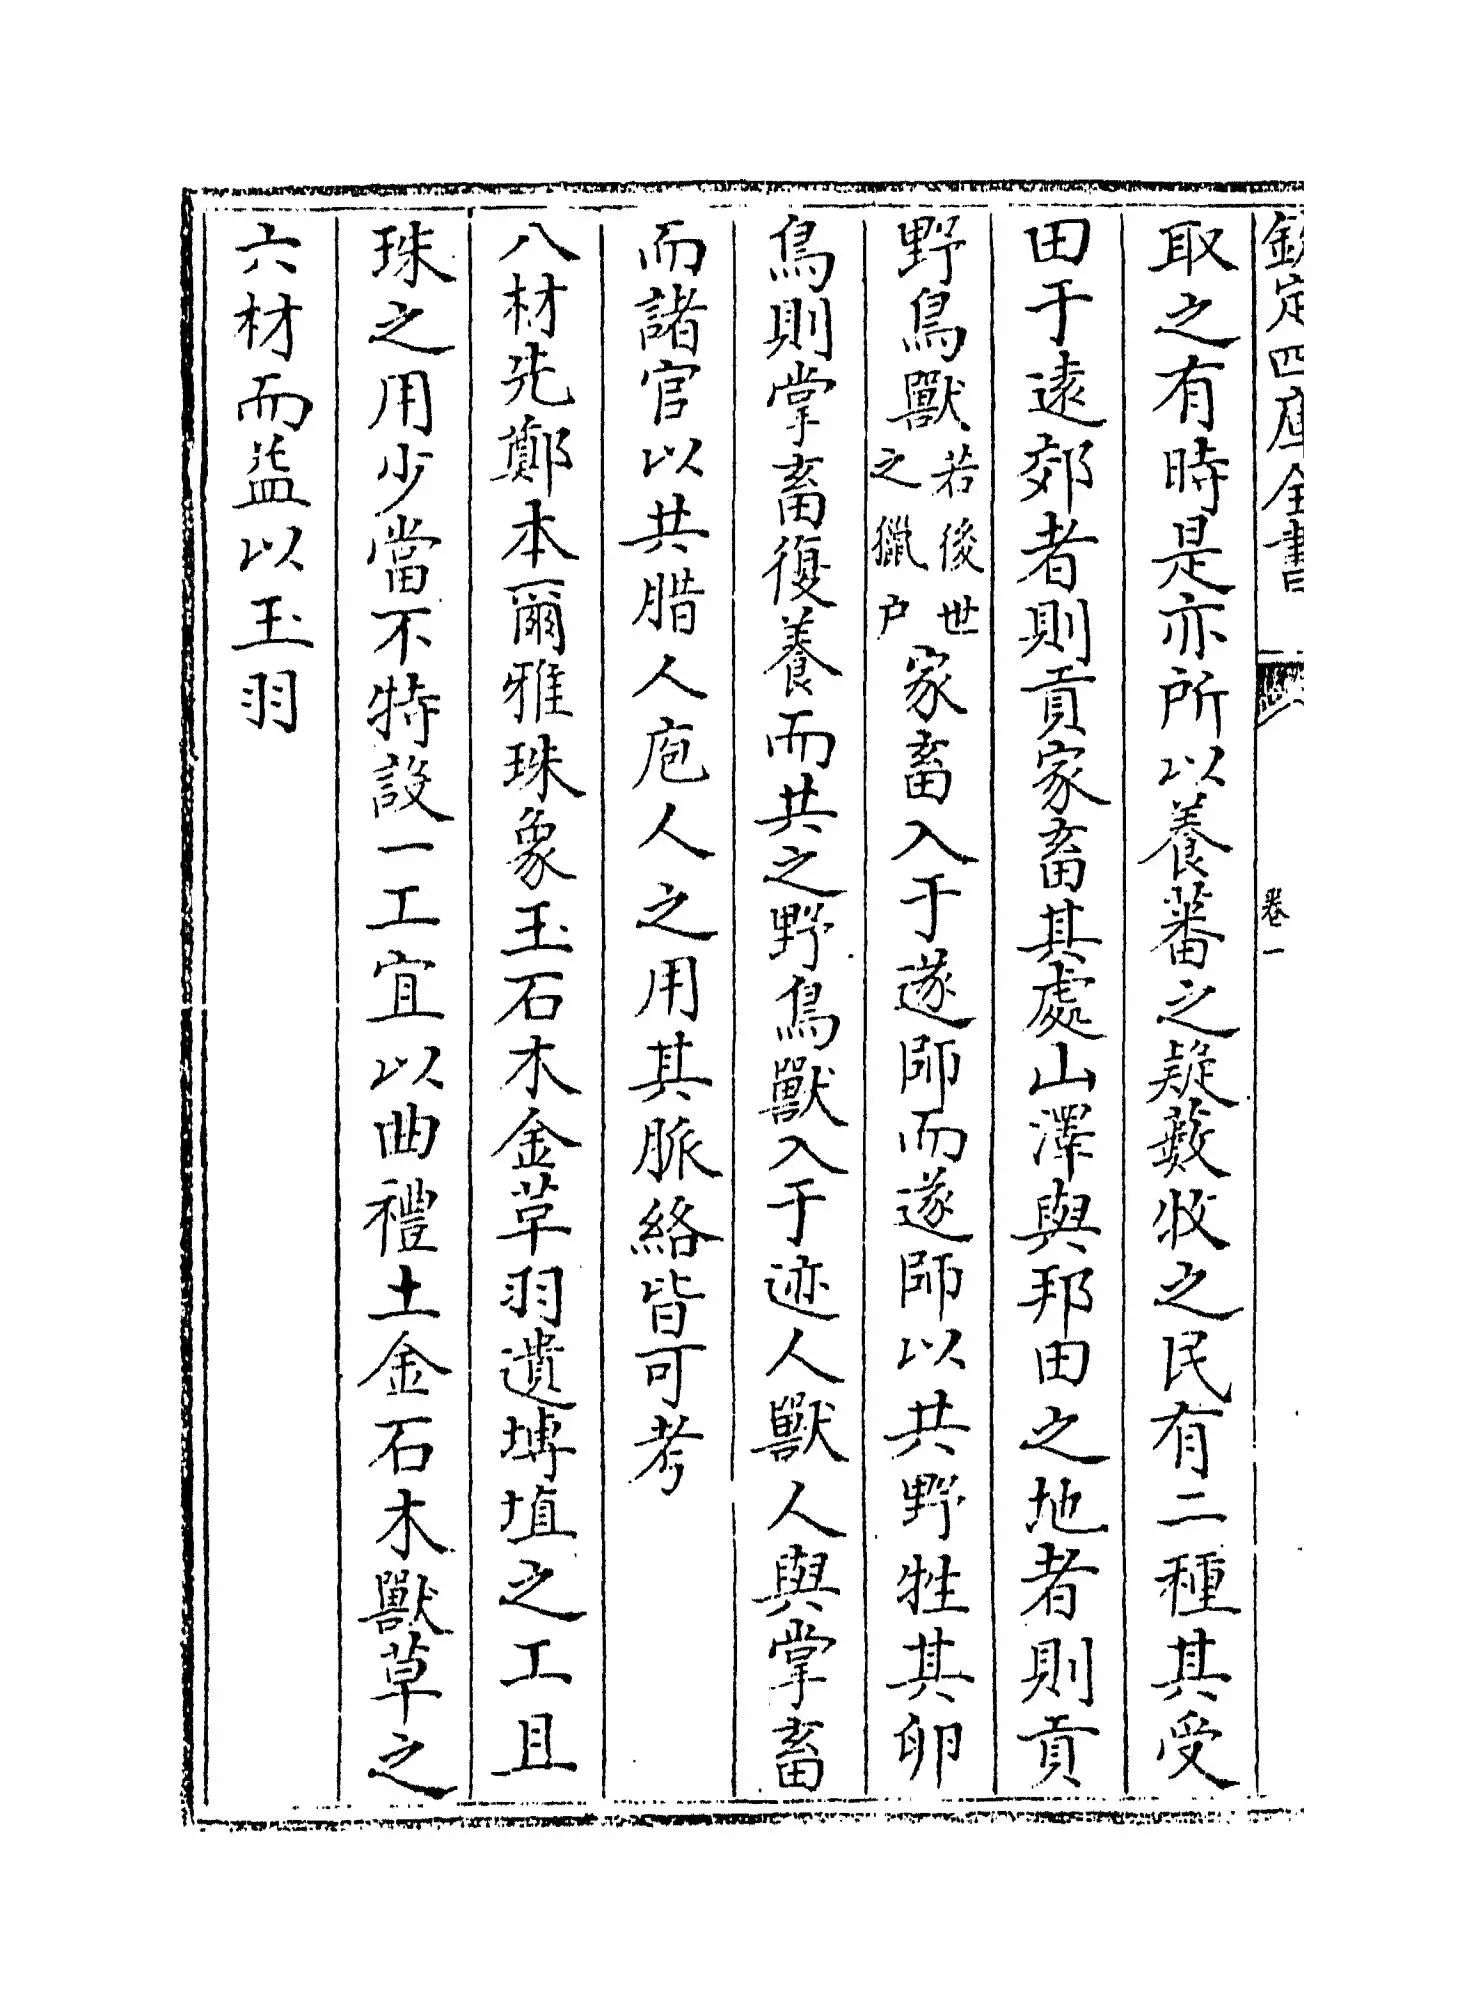 欽定四庫全書
卷一
取之有時是亦所以養蕃之疑藪牧之民有二種其受
田于遠郊者則貢家畜其處山澤與邦田之地者則貢
野鳥獸若後世之獵户家畜入于遂師而遂師以共野牲其卵
鳥則掌畜復養而共之野鳥獸入于迹人獸人與掌畜
而諸官以共腊人庖人之用其脈絡皆可考
八材先鄭本爾雅珠象玉石木金草羽遺摶埴之工且
珠之用少當不特設一工宜以曲禮土金石木獸草之
六材而益以玉羽